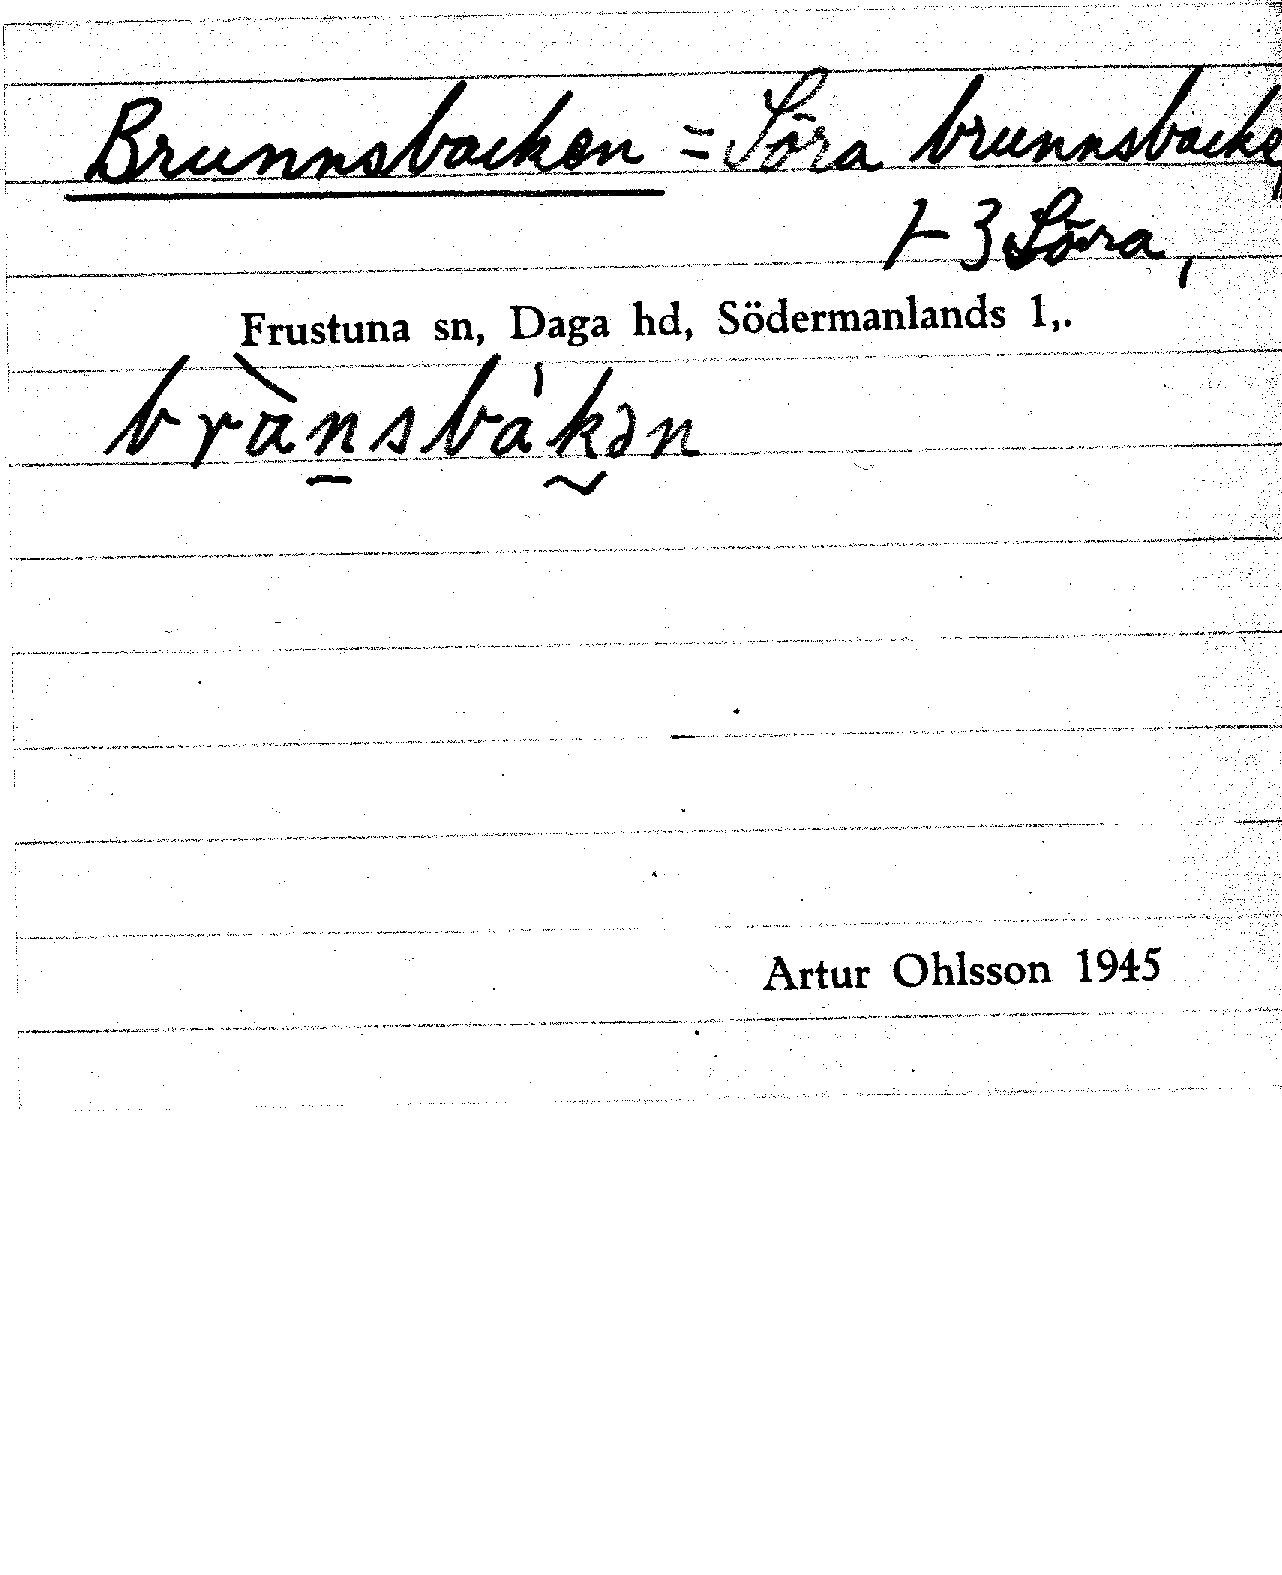 Brunnsbacken = Söra brunnsbacke
⊬ 3 Söra,
Frustuna sn, Daga hd, Södermanlands l,.
brànsbákən
Artur Ohlsson 1945